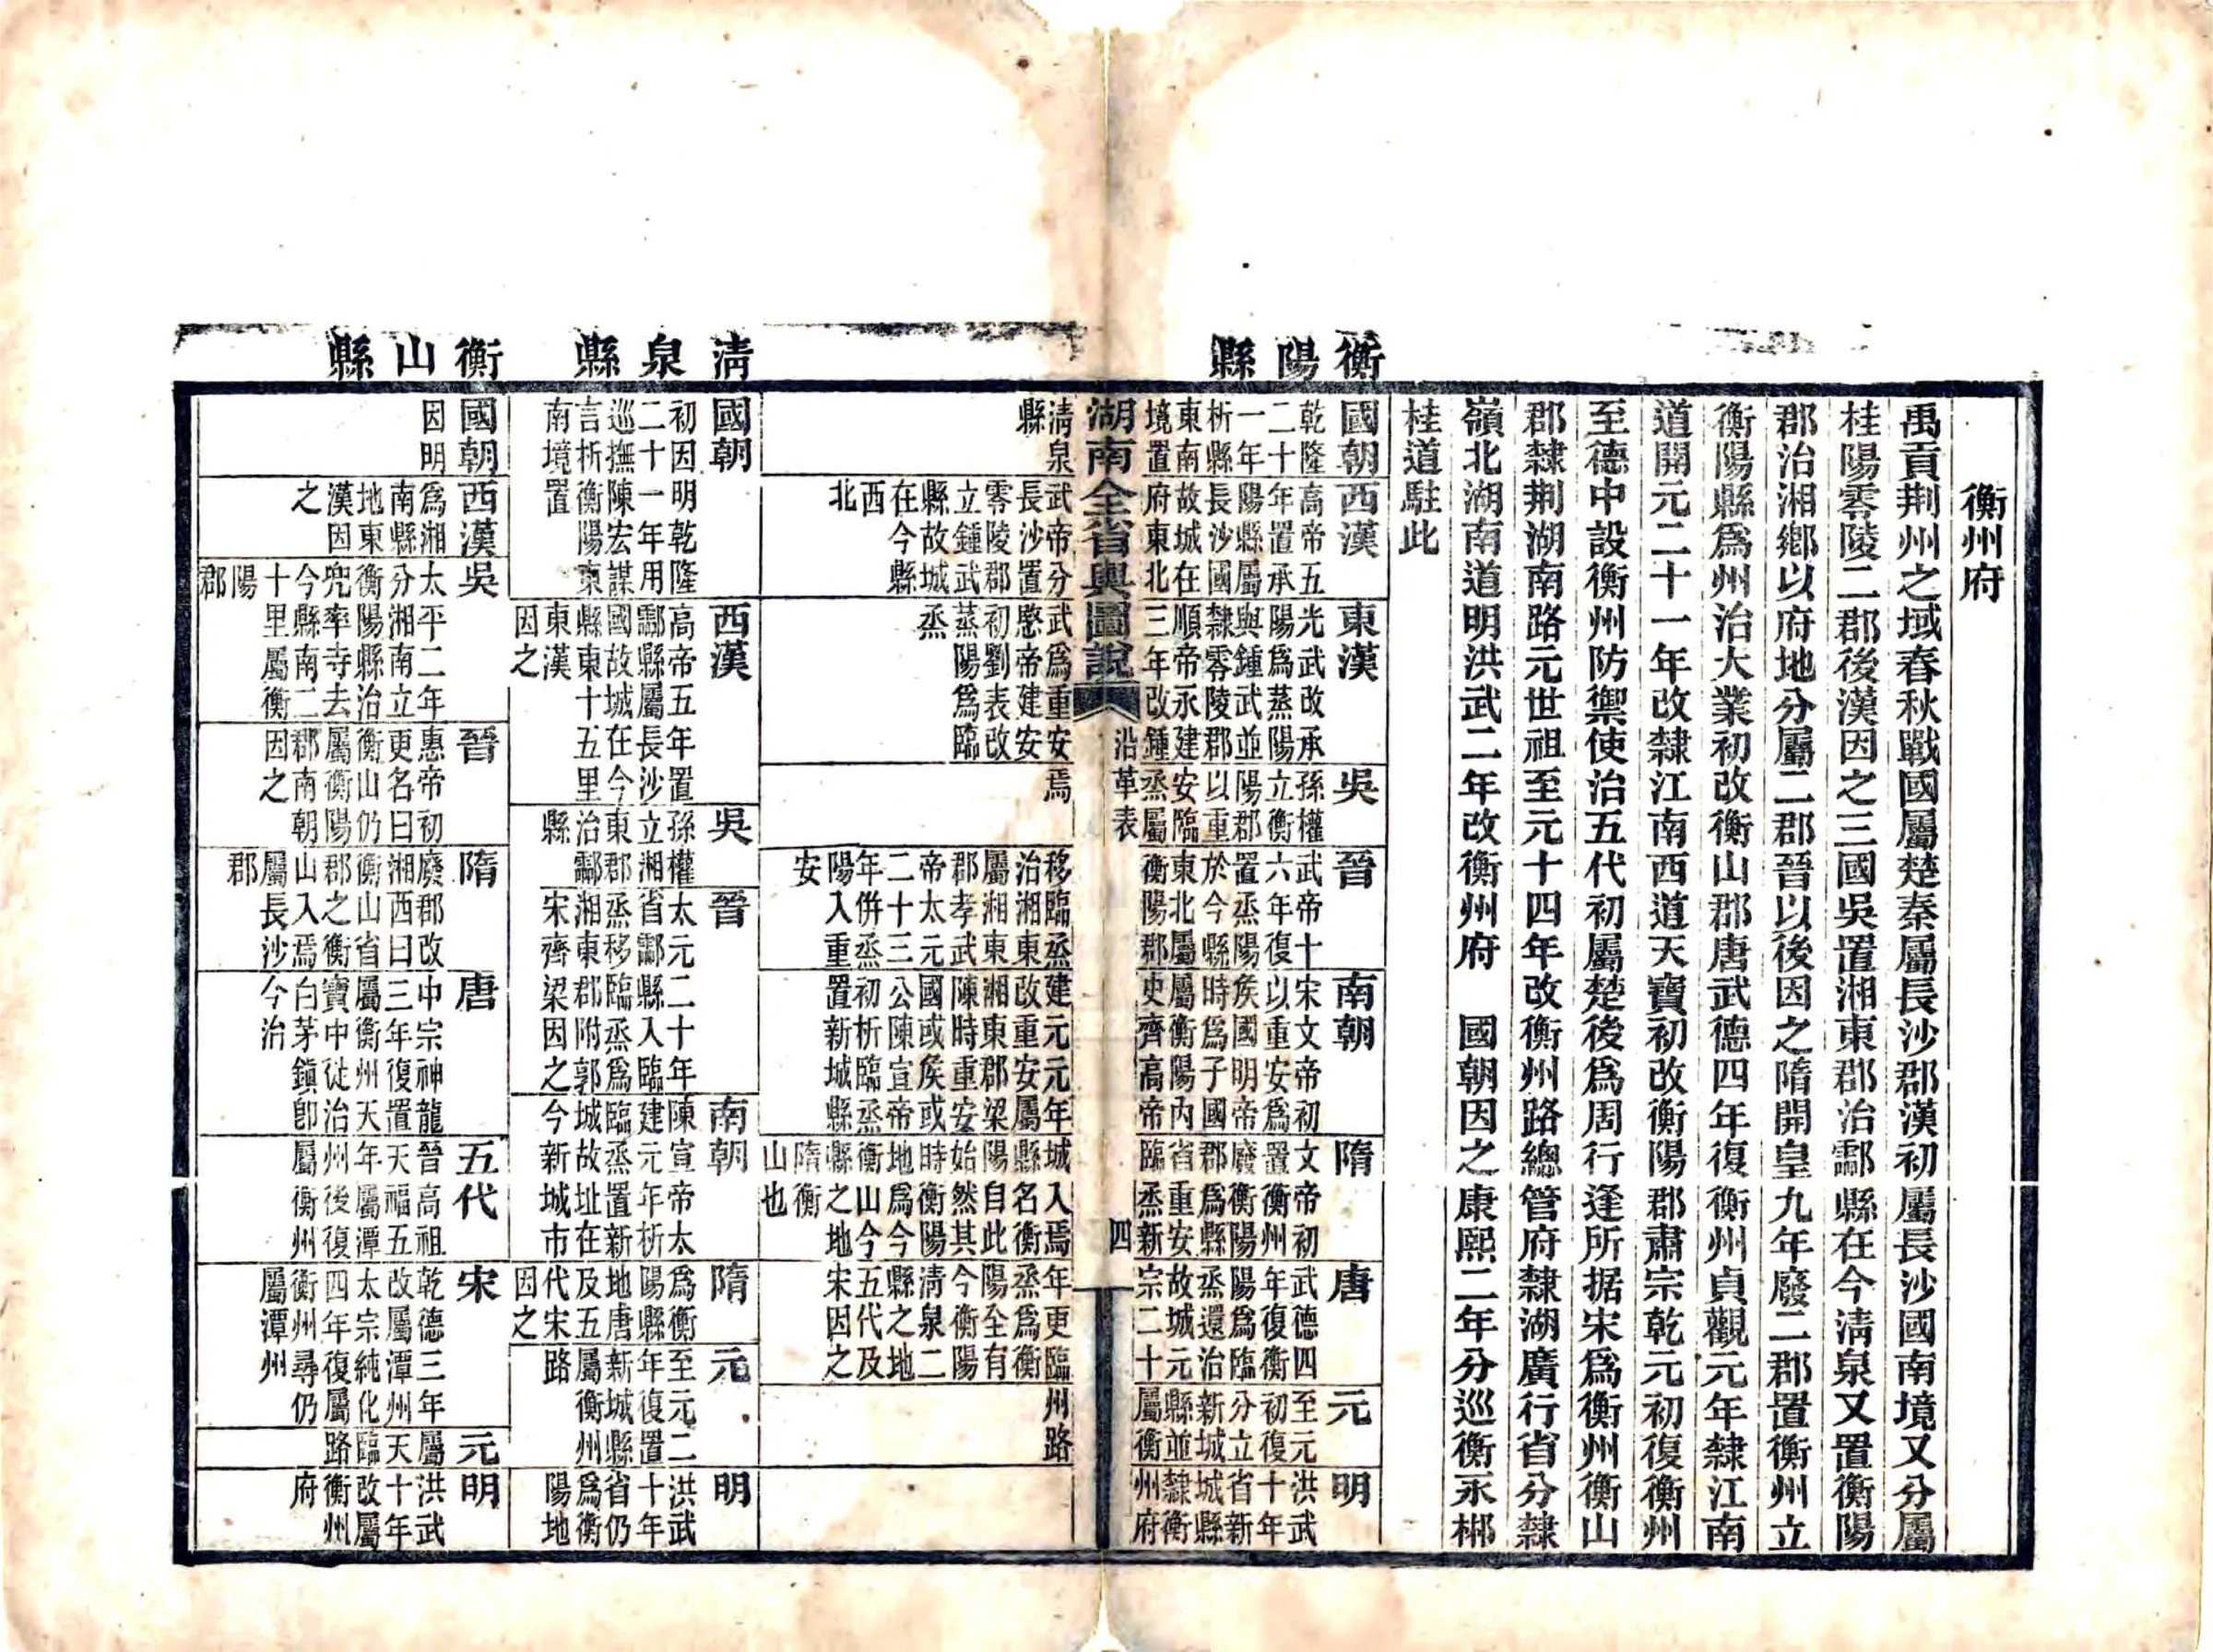 衡州府
禹貢荆州之域春秋戰國屬楚秦屬長沙郡漢初屬長沙國南境又分屬
桂陽零陵二郡後漢因之三國吳置湘東郡治酃縣在今清泉又置衡陽
郡治湘鄉以府地分屬二郡晉以後因之隋開皇九年廢二郡置衡州立
衡陽縣爲州治大業初改衡山郡唐武德四年復衡州貞觀元年隸江南
道開元二十一年改隸江南西道天寶初改衡陽郡肅宗乾元初復衡州
至德中設衡州防禦使治五代初屬楚後爲周行逢所据宋爲衡州衡山
郡隸荆湖南路元世祖至元十四年改衡州路總管府隸湖廣行省分隸
嶺北湖南道明洪武二年改衡州府 國朝因之康熙二年分巡衡永郴
桂道駐此
衡陽縣
國朝
乾隆二十一年析縣東南境置清泉縣
西漢
高帝五年置承陽縣屬長沙國故城在府東北武帝分長沙置零陵郡立鍾武縣故城在今縣西北
東漢
光武改承陽爲蒸陽與鍾武並隸零陵郡順帝永建三年改鍾武爲重安愍帝建安初劉表改蒸陽爲臨烝
吳
孫權立衡陽郡以重安臨烝屬焉
晉
武帝十六年復置烝陽於今縣東北屬衡陽郡移臨烝治湘東屬湘東郡孝武帝太元二十三年併烝陽入重安
南朝
宋文帝初以重安爲矦國明帝時爲子國屬衡陽內史齊高帝建元元年改重安屬湘東郡梁陳時重安國或矦或公陳宣帝初析臨烝置新城縣
隋
文帝初置衡州廢衡陽郡爲縣省重安臨烝新城入焉縣名衡陽自此始然其時衡陽地爲今衡山今縣之地隋衡山也
唐
武德四年復衡陽爲臨烝還治故城元宗二十年更臨烝爲衡陽全有今衡陽清泉二縣之地五代及宋因之
元
至元初復分立新城縣並屬衡州路
明
洪武十年省新城縣隸衡州府
湖南全省輿圖說
沿革表
四
清泉縣
國朝
初因明乾隆二十一年用巡撫陳宏謀言析衡陽東南境置
西漢
高帝五年置酃縣屬長沙國故城在今縣東十五里東漢因之
吳
孫權立湘東郡治酃縣
晉
太元二十年省酃縣入臨烝移臨烝爲湘東郡附郭宋齊梁因之
南朝
陳宣帝太建元年析臨烝置新城故址在今新城市
隋
爲衡陽縣地唐及五代宋因之
元
至元二年復置新城縣屬衡州路
明
洪武十年省仍爲衡陽地
衡山縣
國朝
因明
西漢
爲湘南縣地東漢因之
吳
太平二年分湘南立衡陽縣治兜率寺去今縣南二十里屬衡陽郡
晉
惠帝初更名曰衡山仍屬衡陽郡南朝因之
隋
廢郡改湘西曰衡山省郡之衡山入焉屬長沙郡
唐
中宗神龍三年復置屬衡州天寶中徙治白茅鎭卽今治
五代
晉高祖天福五年屬潭州後復屬衡州
宋
乾德三年改屬潭州太宗純化四年復屬衡州尋仍屬潭州
元
屬天臨路
明
洪武十年改屬衡州府